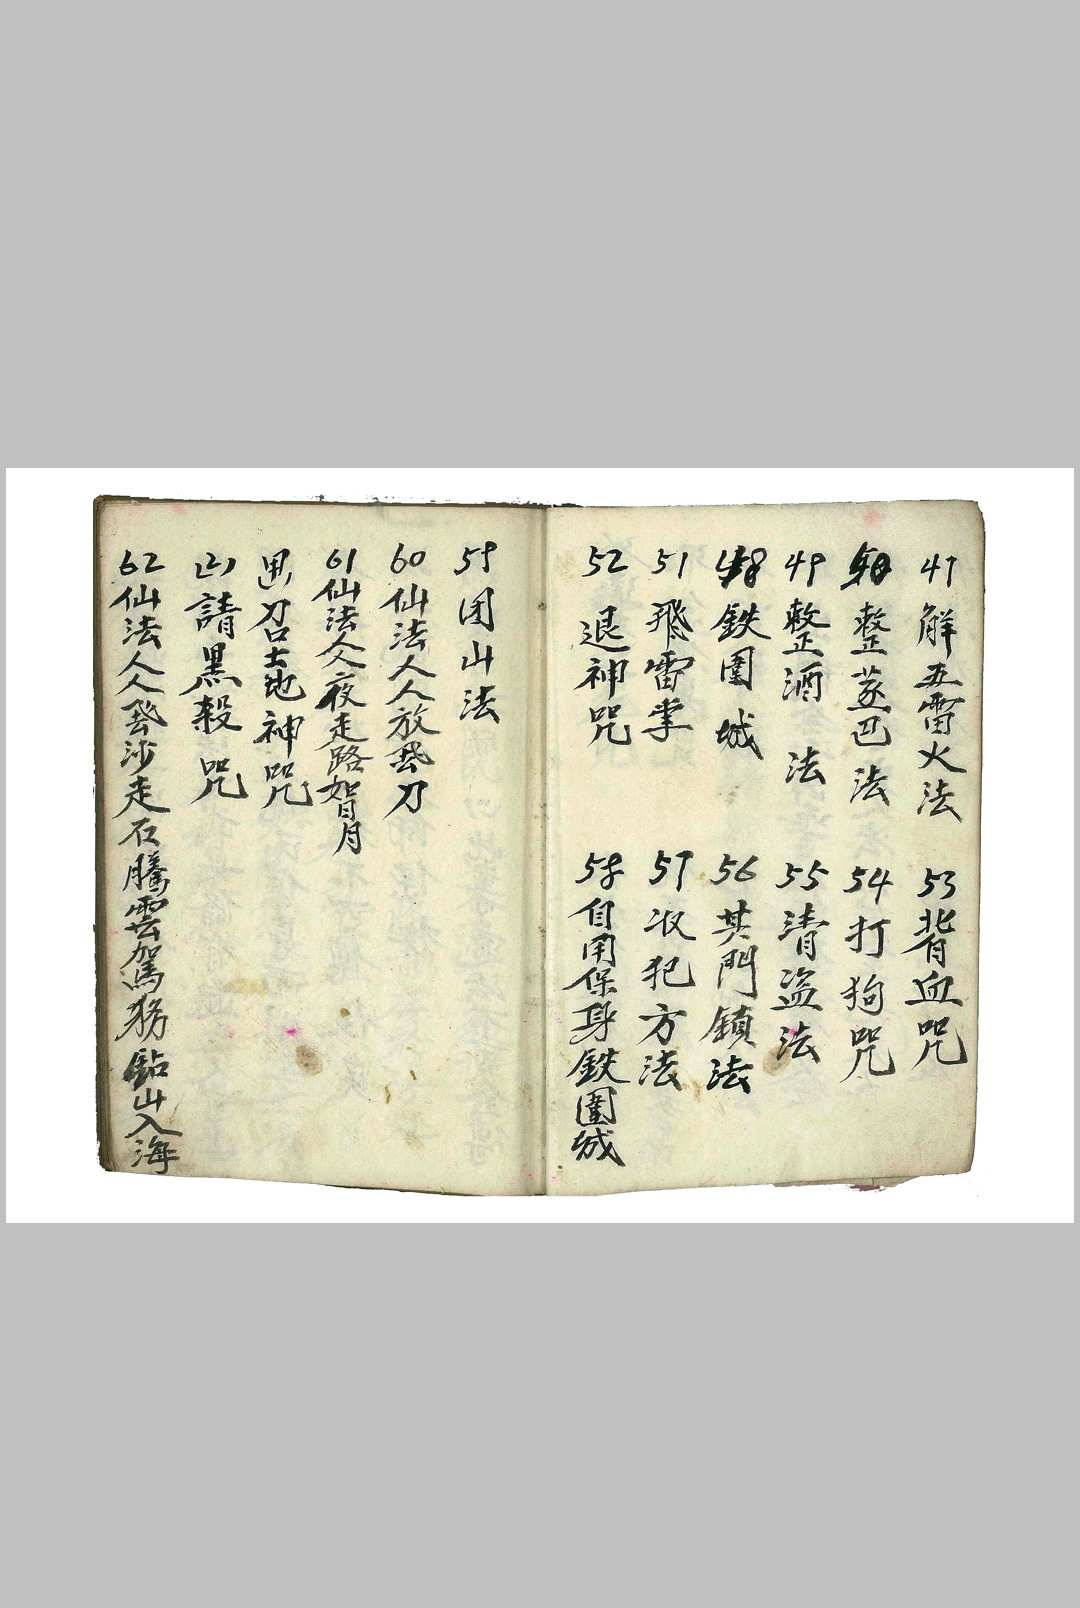 47 解五雷火法
整蒸巴法
49 整酒法
48 鉄圍城
51 飛雷掌
52 退神咒
53 背血咒
54 打狗咒
55 清盗法
56 其門鎖法
57 收犯方法
58 自用保身鉄圍城
59 团山法
60 仙法人人放飛刀
61 仙法人夜走路如月
召土地神咒
請黑殺咒
62 仙法人人飛沙走石騰雲駕務鉆山入海